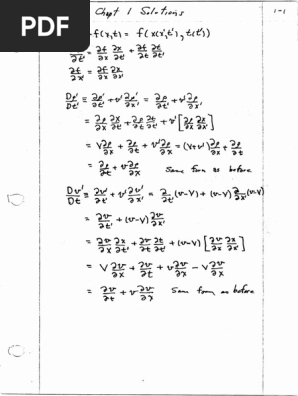 PDF
Chapt 1 Solutions
1-1
f(x,t) = f(x(x',t'), t(t'))
∂f/∂t' = ∂f/∂x ∂x/∂t' + ∂f/∂t ∂t/∂t'
∂f/∂x' = ∂f/∂x ∂x/∂x'
Dρ'/Dt' ≡ ∂ρ'/∂t' + v' ∂ρ'/∂x' = ∂ρ/∂t' + v' ∂ρ/∂x'
= ∂ρ/∂x ∂x/∂t' + ∂ρ/∂t ∂t/∂t' + v' [∂ρ/∂x ∂x/∂x']
= V ∂ρ/∂x + ∂ρ/∂t + v' ∂ρ/∂x = (V+v') ∂ρ/∂x + ∂ρ/∂t
= ∂ρ/∂t + v ∂ρ/∂x Same form as before
Dv'/Dt' ≡ ∂v'/∂t' + v' ∂v'/∂x' = ∂/∂t' (v-V) + (v-V) ∂/∂x' (v-V)
= ∂v/∂t' + (v-V) ∂v/∂x'
= ∂v/∂x ∂x/∂t' + ∂v/∂t ∂t/∂t' + (v-V) [∂v/∂x ∂x/∂x']
= V ∂v/∂x + ∂v/∂t + v ∂v/∂x - V ∂v/∂x
= ∂v/∂t + v ∂v/∂x Same form as before